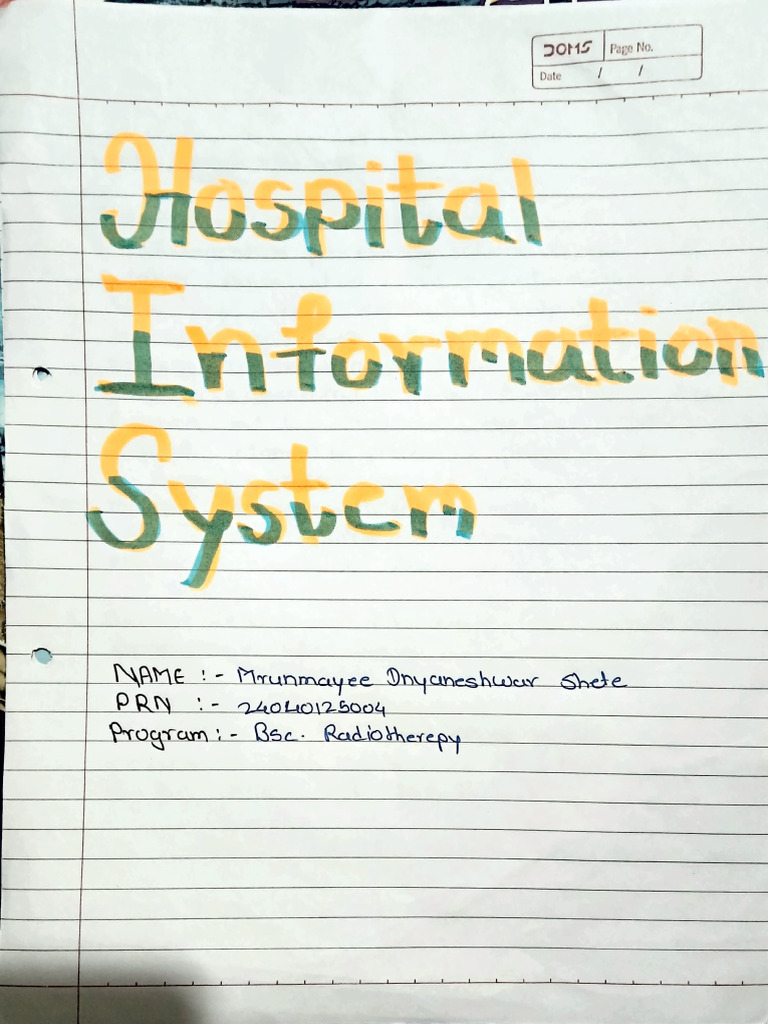 DOMS Page No.
Date / /
Hospital
Information
System
NAME :- Mrunmayee Dnyaneshwar Shete
PRN :- 24040125004
Program :- Bsc. Radiotherepy